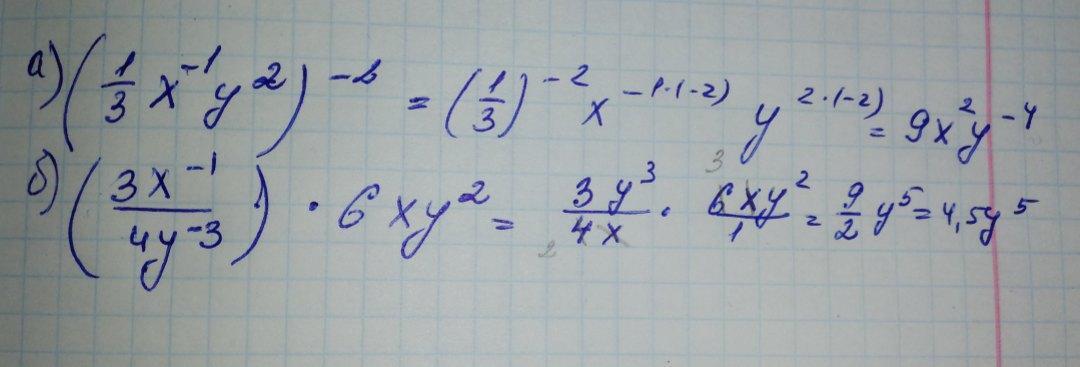 а) (1/3 x⁻¹y²)⁻² = (1/3)⁻² x⁻¹·⁽⁻²⁾ y²·⁽⁻²⁾ = 9x²y⁻⁴
б) (3x⁻¹/4y⁻³) · 6xy² = 3y³/4x · 6xy²/1 = 9/2 y⁵ = 4,5y⁵